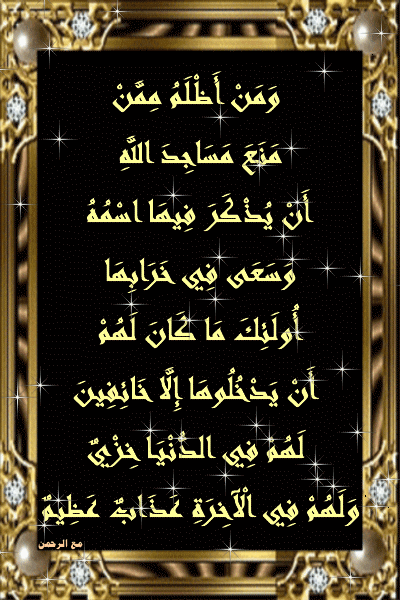 وَمَنْ أَظْلَمُ مِمَّنْ
مَنَعَ مَسَاجِدَ اللَّهِ
أَنْ يُذْكَرَ فِيهَا اسْمُهُ
وَسَعَى فِي خَرَابِهَا
أُولَئِكَ مَا كَانَ لَهُمْ
أَنْ يَدْخُلُوهَا إِلَّا خَائِفِينَ
لَهُمْ فِي الدُّنْيَا خِزْيٌ
وَلَهُمْ فِي الْآخِرَةِ عَذَابٌ عَظِيمٌ
مع الرحمن